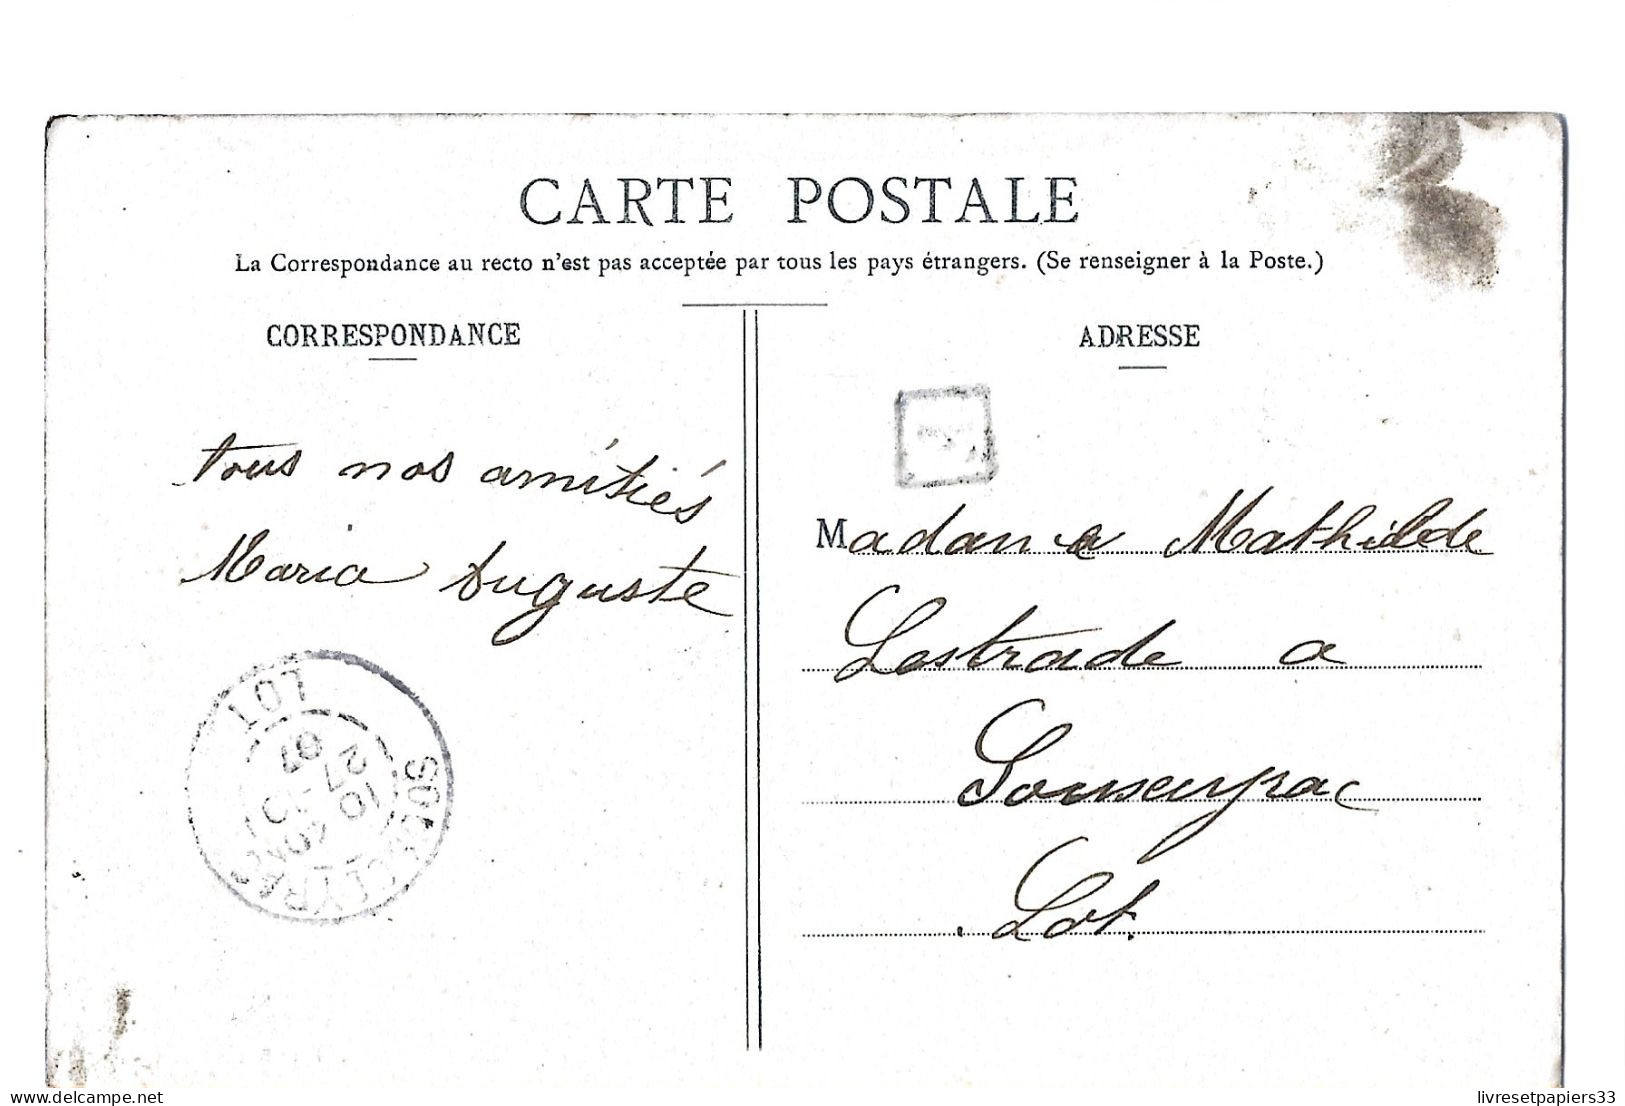 CARTE POSTALE
La Correspondance au recto n'est pas acceptée par tous les pays étrangers. (Se renseigner à la Poste.)
CORRESPONDANCE
tous nos amitiés
Maria Auguste
LOT
27
10
07
ADRESSE
Madame Mathilde
Lestrade a
Souseyrac
Lot.
livresetpapiers33